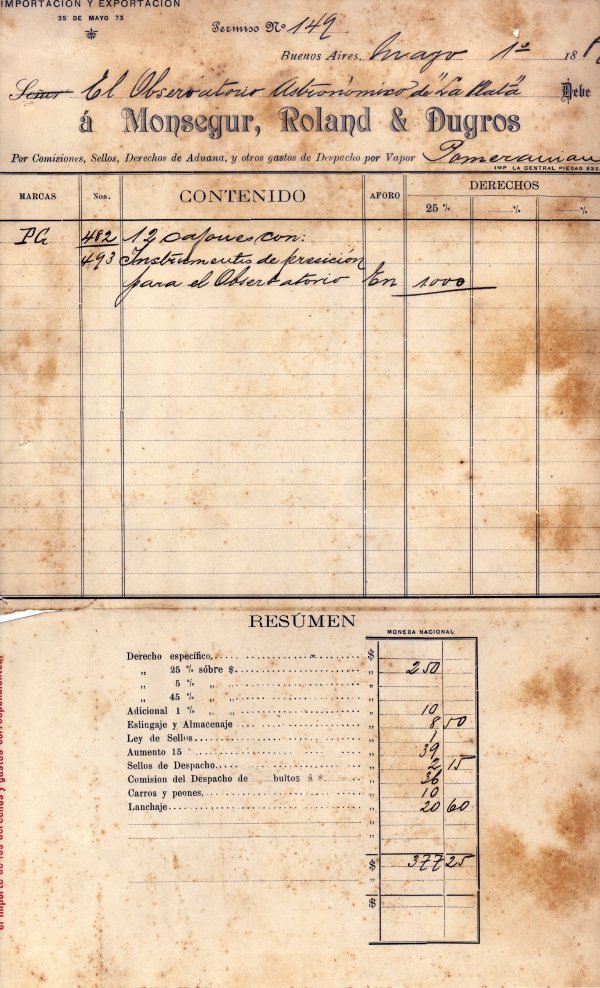 IMPORTACIÓN Y EXPORTACIÓN
25 DE MAYO 73
Permiso Nº 149
Buenos Aires, Mayo 1º 188
Señor El Observatorio Astronómico de "La Plata" Debe
á Monsegur, Roland & Dugros
Por Comisiones, Sellos, Derechos de Aduana, y otros gastos de Despacho por Vapor Pomeranian
IMP LA CENTRAL PIEDAD 833
MARCAS Nos. CONTENIDO AFORO DERECHOS
25 % % %
PG 482 12 cajones con:
493 Instrumentos de presición
para el Observatorio En 1000
RESÚMEN
MONEDA NACIONAL
Derecho específico $
„ 25 % sóbre $ „ 250
„ 5 % „ „ „
„ 45 % „ „ „
Adicional 1 % „ „ „ 10
Eslingaje y Almacenaje „ 8 50
Ley de Sellos „ 1
Aumento 15 „ 39
Sellos de Despacho „ 2 15
Comision del Despacho de bultos á $ „ 36
Carros y peones „ 10
Lanchaje „ 20 60
$ 377 25
$
el importe de los derechos y gastos correspondientes